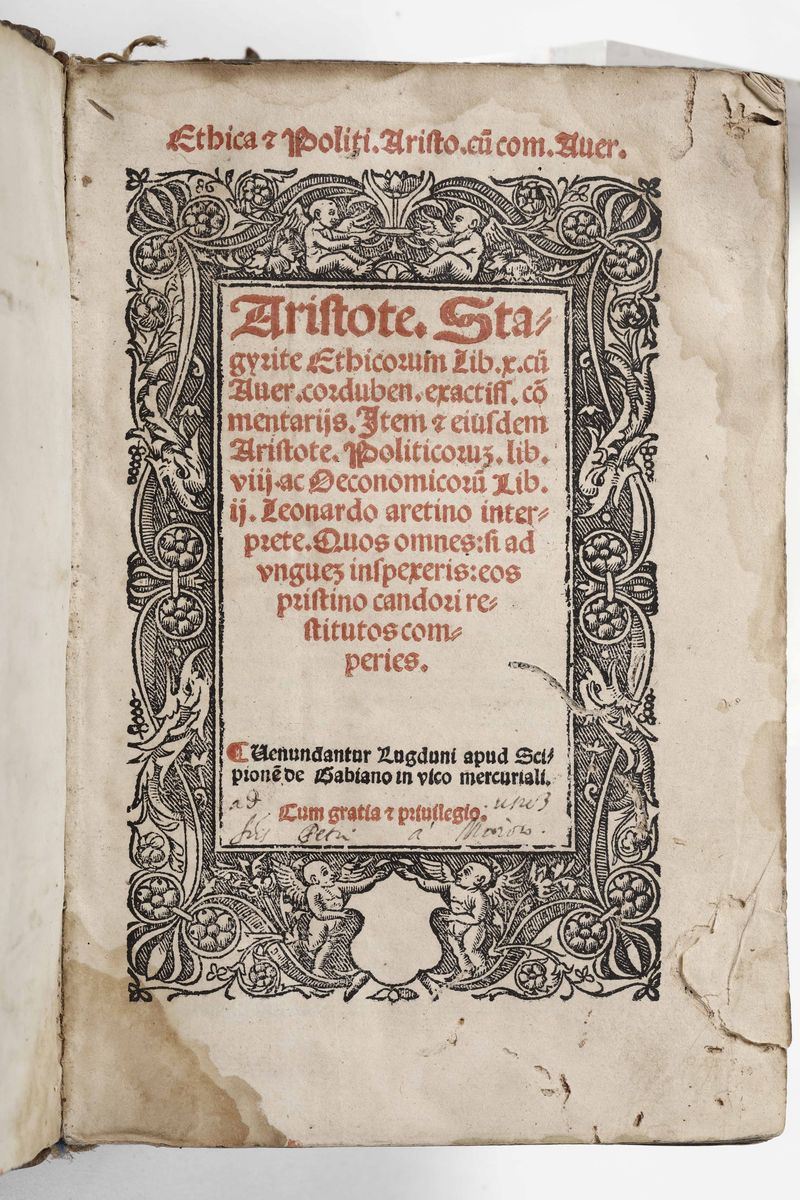 Ethica ⁊ Politi. Aristo. cū com. Auer.
Aristote. Sta⸗
gyrite Ethicorum Lib. x. cū
Auer. corduben. exactiss. cō
mentarijs. Item ⁊ eiusdem
Aristote. Politicoruꝫ. lib.
viij. ac Oeconomicorū Lib.
ij. Leonardo aretino inter⸗
prete. Quos omnes: si ad
vngueꝫ inspexeris: eos
pristino candori re⸗
stitutos com⸗
peries.
Uenundantur Lugduni apud Sci⸗
pionē de Gabiano in vico mercuriali.
ad
Cum gratia ⁊ priuilegio.
Petri a